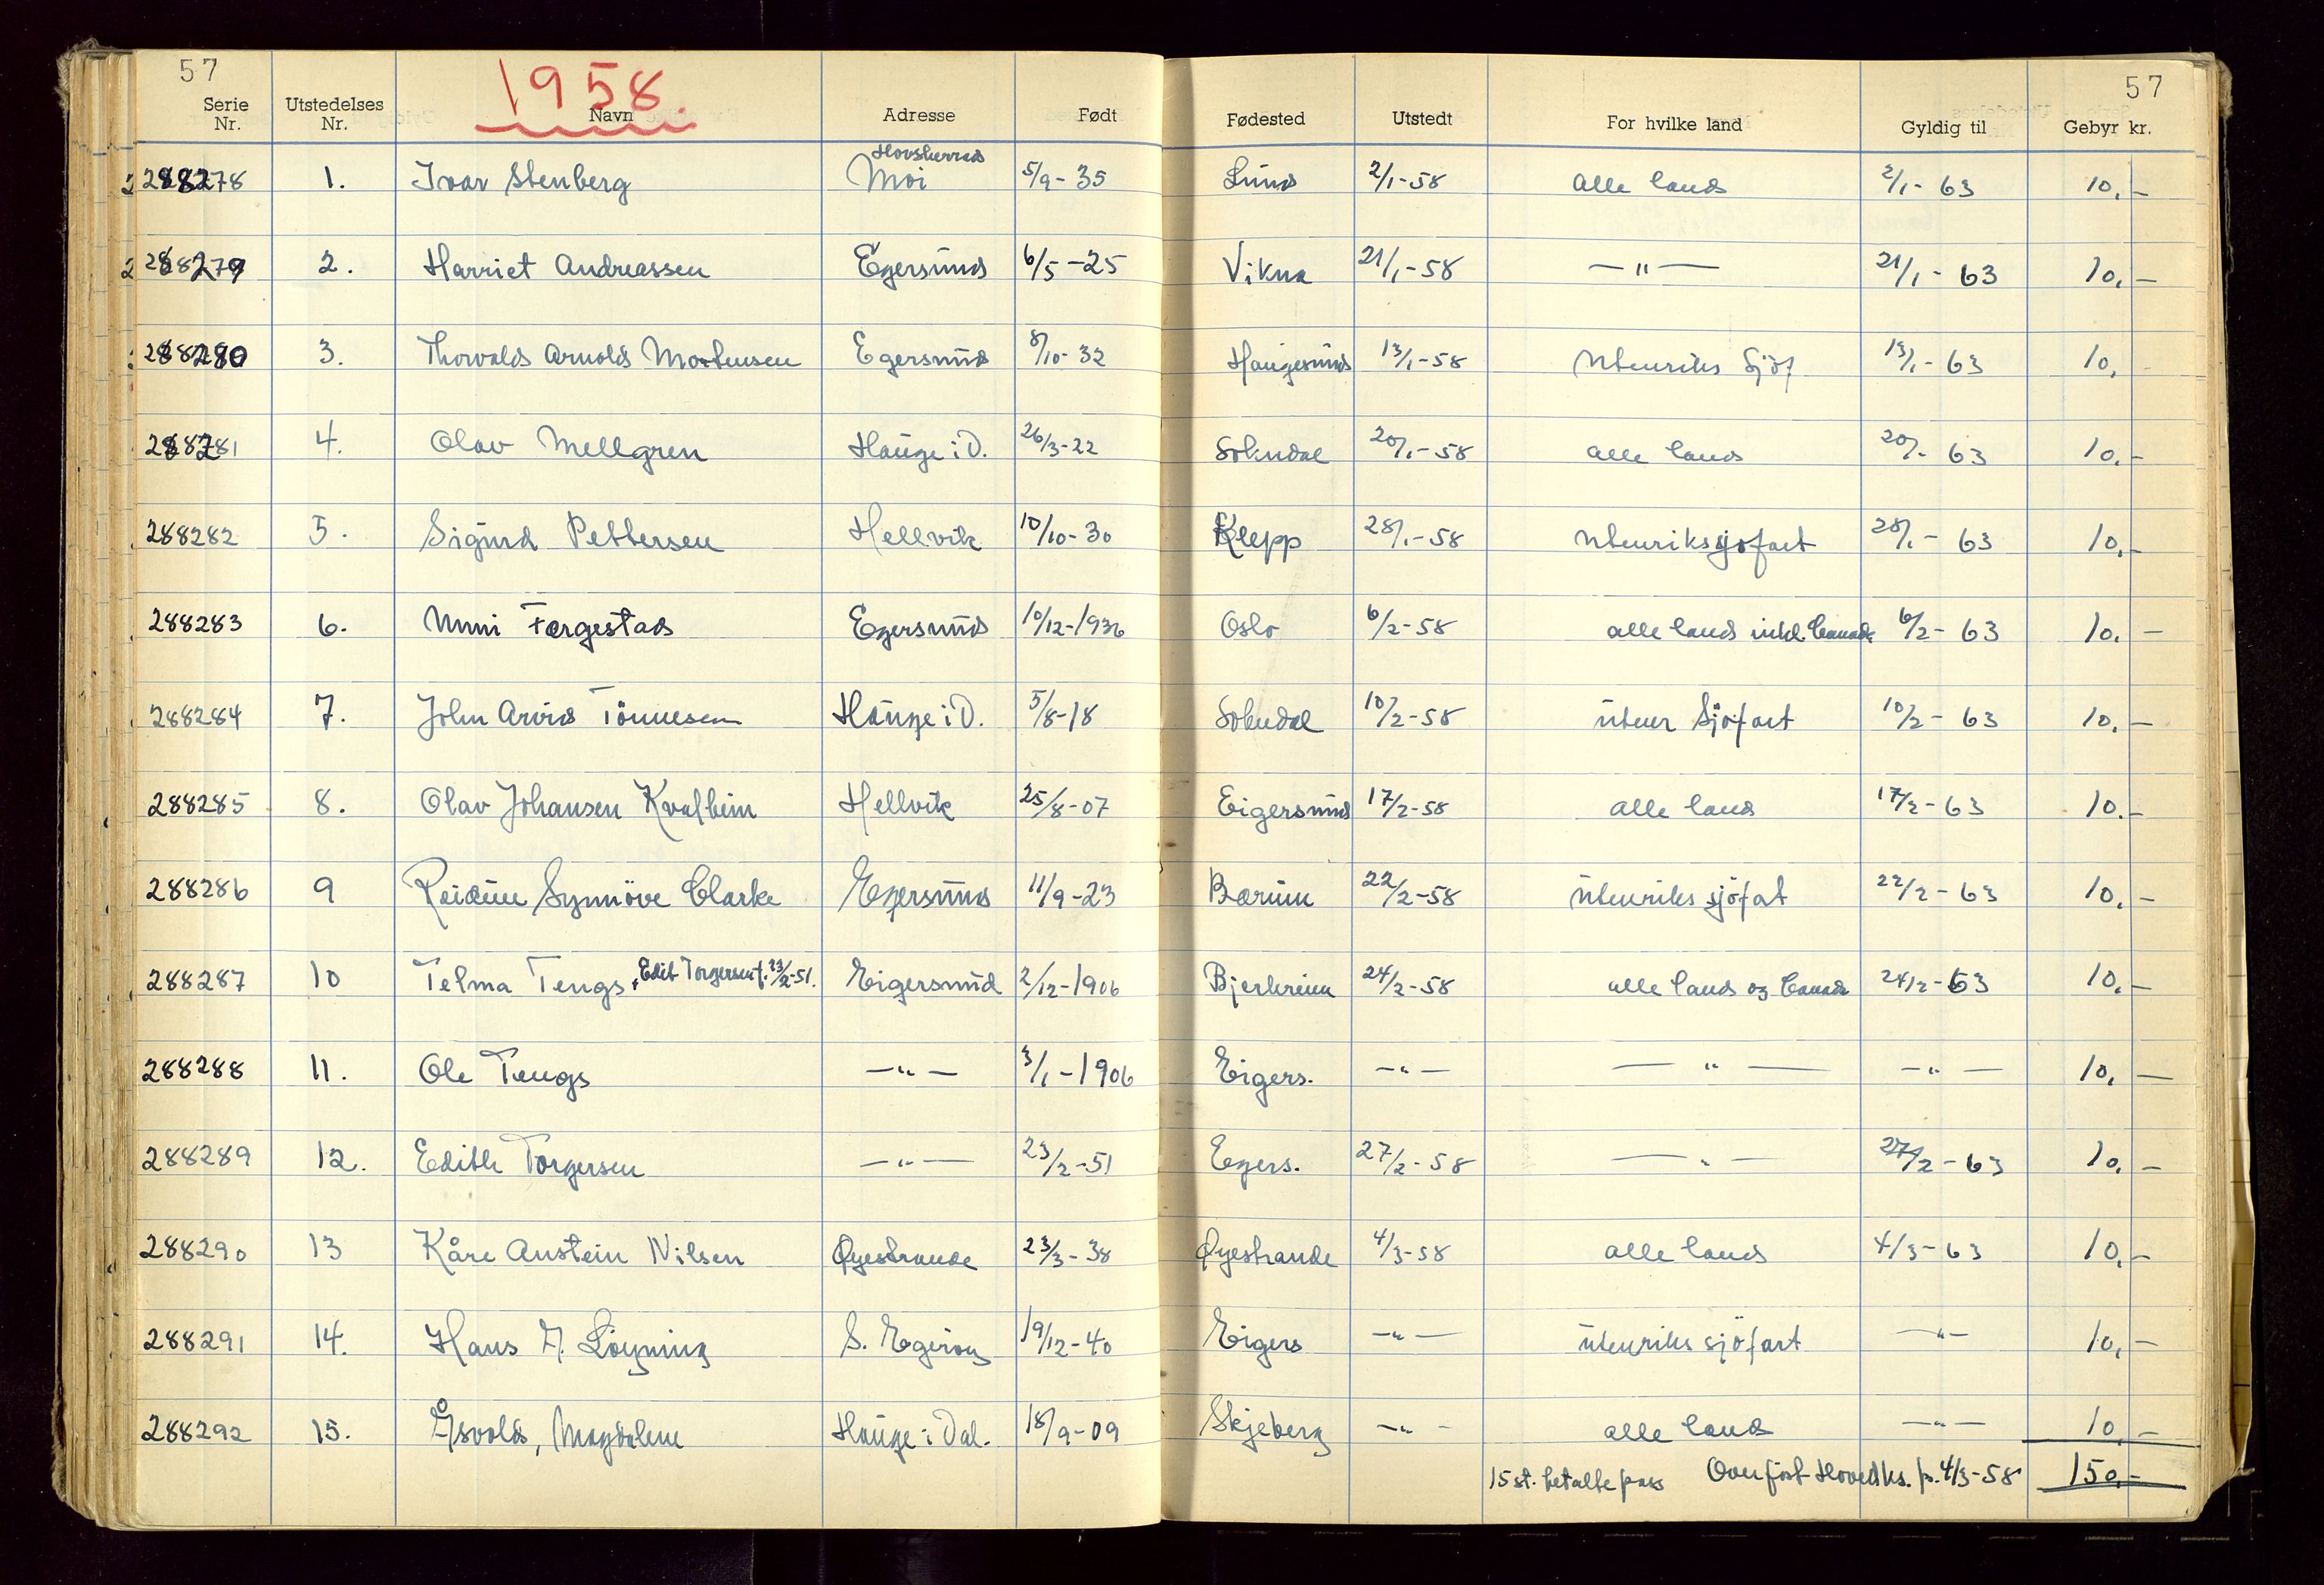 57
1958.
57
Serie Nr. Utstedelses Nr. Navn Adresse Født Fødested Utstedt For hvilke land Gyldig til Gebyr kr.
288278 1. Ivar Stenberg Hovsherred Moi 5/9-35 Lund 2/1-58 alle land 2/1-63 10,-
288279 2. Harriet Andreassen Egersund 6/5-25 Vikna 21/1-58 -"- 21/1-63 10,-
288280 3. Thorvald Arnold Mortensen Egersund 8/10-32 Haugesund 13/1-58 Utenriks Sjöf 13/1-63 10,
288281 4. Olav Mellgren Hauge i D. 26/3-22 Sokndal 20/1-58 alle land 20/1-63 10.-
288282 5. Sigurd Pettersen Hellvik 10/10-30 Klepp 28/1-58 Utenriksjøfart 28/1-63 10,-
288283 6. UnniFørgestad Egersund 10/12-1936 Oslo 6/2-58 alle land inkl. Canada 6/2-63 10.-
288284 7. John Arvid Tönnesen Hauge i D. 5/8-18 Sokndal 10/2-58 utenr Sjöfart 10/2-63 10,-
288285 8. Olav Johansen Kvalheim Hellvik 25/8-07 Eigersund 17/2-58 alle land 17/2-63 10.-
288286 9 Reidun Synnöve Clarke Egersund 11/9-23 Bærum 22/2-58 utenriks sjöfat 22/2-63 10,-
288287 10 Telma Tengs, + Edit Torgersen f. 23/2-51. Eigersund 2/12-1906 Bjerkreim 24/2-58 alle land og Canada 24/2-63 10,-
288288 11. Ole Tengs -"- 3/1-1906 Eigers. -"- -"- -"- 10,-
288289 12. Edith Torgersen -"- 23/2-51 Egers. 27/2-58 -"- 27/2-63 10,-
288290 13 Kåre Anstein Nilsen Øyestrande 23/3-38 Øyestrande 4/3-58 alle land 4/3-63 10,-
288291 14. Hans M. Löyning S. Egeröy 19/12-40 Eigers -"- utenriks sjöfart -"- 10,-
288292 15. Åsvold, Magdalene Hauge i Dal. 18/9-09 Skjeberg -"- alle land -"- 10,-
15 st. betalte pass Overfört Hovedks. p. 4/3-58 150,-